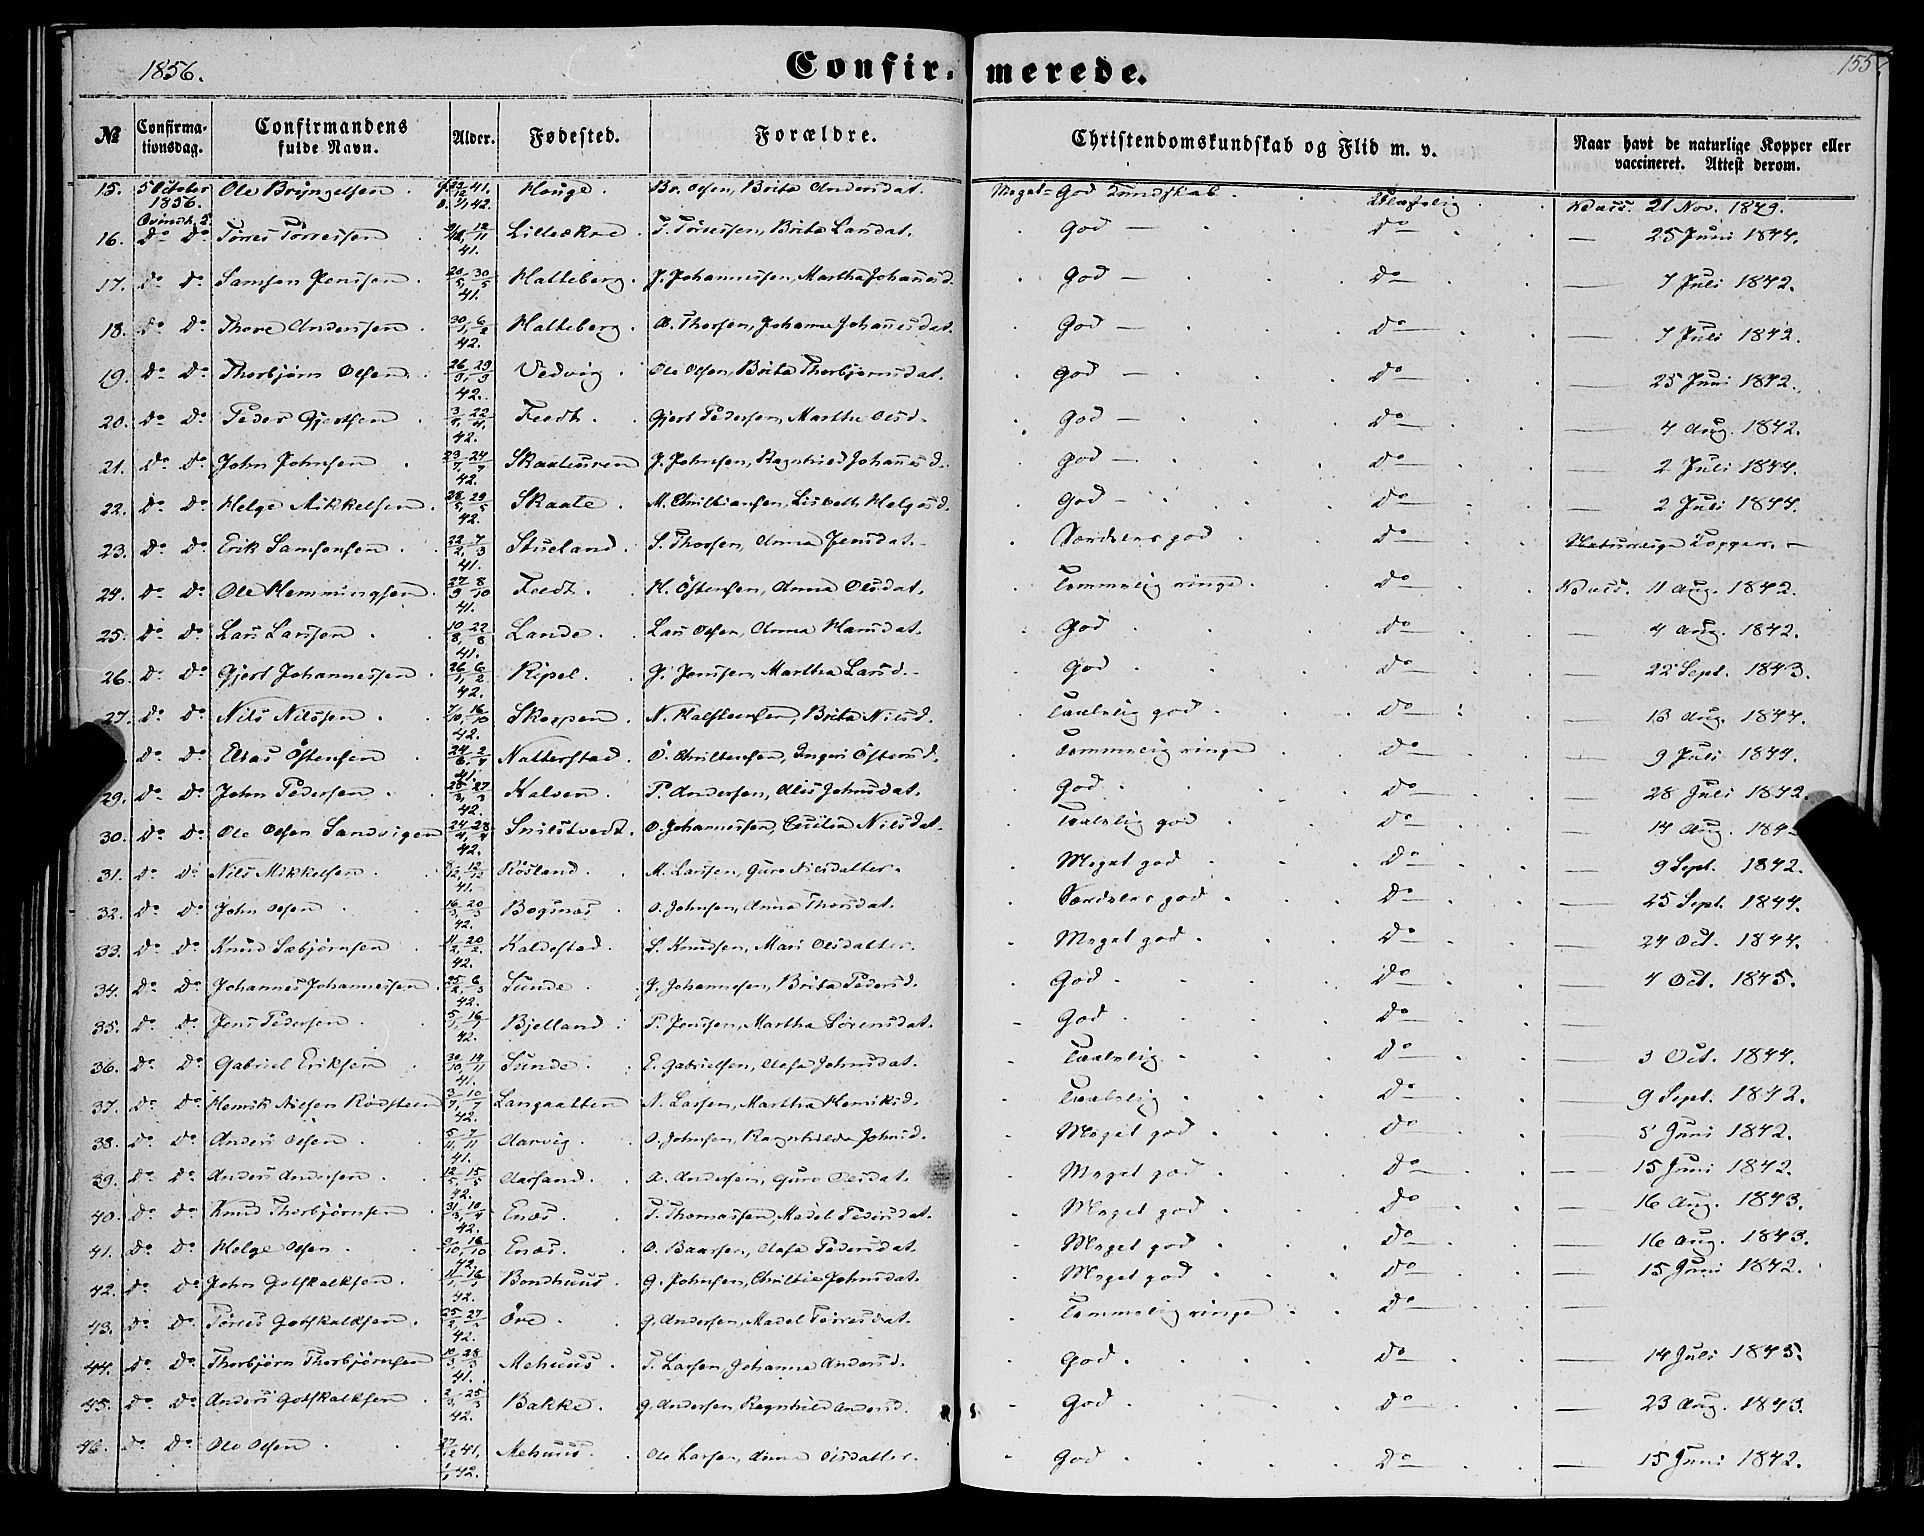 1856.
Confir-merede.
155.
№ Confirma-tionsdag. Confirmandens fulde Navn. Alder. Fødested. Forældre. Christendomskundskab og Flid m. v. Naar havt de naturlige Kopper eller vaccineret. Attest derom.
15. 5 October 1856. Ole Brÿngelsen 41. 42. Houge. Br. Olsen, Brita Andersdat. Meget God Kundskab. Vacc. 21 Nov. 1849.
16. Do Do Törres Törressen 41. Lilleækre T. Törressen, Brita Larsdat. God — Do — 25 Juni 1844.
17. Do Do Samson Jenssen 20/5, 30/5 41. Hatteberg. J. Johannessen, Martha Johannesd. God — Do — 7 Juli 1842.
18. Do Do Thore Anderssen 30/1, 6/2 42. Hatteberg. A. Thorsen, Johanna Johannesdat. God — Do — 7 Juli 1842.
19. Do Do Thorbjörn Olsen 26/3, 29/3 42. Vedvig. Ole Olsen, Brita Thorbjørnsdat. God — Do — 25 Juni 1842.
20. Do Do Peder Gjertsen 3/4, 22/4, 42. Feedt. Gjert Pedersen, Martha Olsd. God — Do — 4 Aug. 1842.
21. Do Do John Johnsen 23/7, 24/7 42. Skaateuren J. Johnsen, Ragnhild Johannesd. God — Do — 2 Juli 1844.
22. Do Do Helge Mikkelsen 28/5, 29/5 42. Skaate. M. Christiansen, Lisbeth Helgesd. God — Do — 2 Juli 1844.
23. Do Do Erik Samsonsen 22/2, 7/3 41. Stueland. S. Thorsen, Anna Jensdat. Særdeles god Do — Naturlige Kopper. —
24. Do Do Ole Hemmingsen 27/9, 8/10 41. Feedt. H. Östensen, Anna Olsdat. Temmelig ringe. Do — Vacc. 11 Aug. 1842.
25. Do Do Lars Larssen 10/8, 22/8 41. Lande. Lars Olsen, Anna Hansdat. God Do — 4 Aug. 1842.
26. Do Do Gjert Johannessen 26/1, 6/2 42. Ripel. J. Jenssen, Martha Larsd. God Do — 22 Sept. 1843.
27. Do Do Nils Nilssen 7/10, 16/10 42. Skorpen N. Halsteensen, Brita Nilsd. Taalelig god Do — 13 Aug. 1844.
Do Do Elias Östensen 41. Natterstad. Ö. Christensen, Ingeri Östensd. Temmelig ringe Do — 9 Juli 1844.
29. Do Do John Pedersen 42. Kalven. P. Andersen, Alis Johnsdat. God Do — 28 Juli 1842.
30. Do Do Ole Olsen Sandvigen 24/4, 28/4 42. Snilstvedt. O. Johannessen, Cecilia Nilsdat. Taalelig god Do — 14 Aug.
31. Do Do Nils Mikkelsen 41. Røsland. M. Larssen, Guro Nilsdatter. Meget god Do — 9 Sept. 1842.
32. Do Do John Olsen 16/3, 20/3 42. Bogsnæs O. Johnsen, Anna Thorsdat. Særdeles god Do — 25 Sept. 1844.
33. Do Do Knud Sæbjörnsen 42. Kaldestad. S. Knudsen, Mari Olsdatter. Meget god Do — 24 Oct. 1844.
34. Do Do Johannes Johannessen 25/2, 6/3 42. Sunde. J. Johannesen, Brita Pedersd. God Do — 4 Oct. 1845.
35. Do Do Jens Pedersen 42. Bjelland. P. Jenssen, Martha Sörensdat. God Do —
36. Do Do Gabriel Eriksen 30/10, 14/11 41. Sunde. E. Gabrielsen, Aasa Johnsdat. Taalelig Do — 3 Oct. 1844.
37. Do Do Henrik Nielsen Rödsteen 3/7, 10/7 42. Langaatten N. Larsen, Martha Henriksd. Taalelig Do — 9 Sept. 1842.
38. Do Do Anders Olsen 5/11, 7/11 41. Aarvig. O. Johnsen, Ragnhilda Johnsd. Meget god Do — 5 Juni 1842.
39. Do Do Anders Andersen 12/5, 15/5 42. Aarsand. A. Andersen, Guro Olsdat. Meget god Do — 15 Juni 1842.
40. Do Do Knud Thorbjörnsen 31/3, 10/4 42. Enæs. T. Thomassen, Madel Pedersdat. Meget god Do — 16 Aug. 1843.
41. Do Do Helge Olsen 42. Enæs. O. Baarsen, Aasa Pedersdat. Meget god Do — 16 Aug. 1843.
42. Do Do John Gotskalksen 42. Bondhuus. G. Johnsen, Christie Johnsdat. Meget god Do — 15 Juni 1842.
43. Do Do Törres Gotskalksen. 42. Öre. G. Andersen, Madel Törresdat. Temmelig ringe Do —
44. Do Do Thorbjörn Thorbjörnsen 41. Mehuus. T. Larsen, Johanna Andersd. God Do — 14 Juli 1845.
45. Do Do Anders Gotskalksen 42. Bakke. G. Andersen Ragnhild Andersd. God Do — 23 Aug. 1843.
46. Do Do Ole Olsen 41, 42. Mehuus. Ole Larsen, Anna Olsdatter. God Do — 15 Juni 1842.